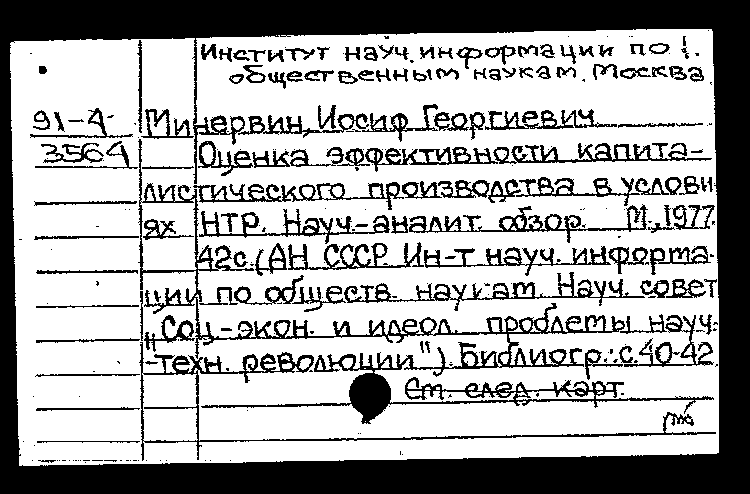 Институт науч. информации по
общественным наукам. Москва
91-4
Минервин, Иосиф Георгиевич
3564
Оценка эффективности капита-
листического производства в услови
ях НТР. Науч.-аналит. обзор. М., 1977.
42с. (АН СССР. Ин-т науч. информа-
ции по обществ. наукам. Науч. совет
"Соц.-экон. и идеол. проблемы науч.
-техн. революции"). Библиогр.: с.40-42
См. след. карт.